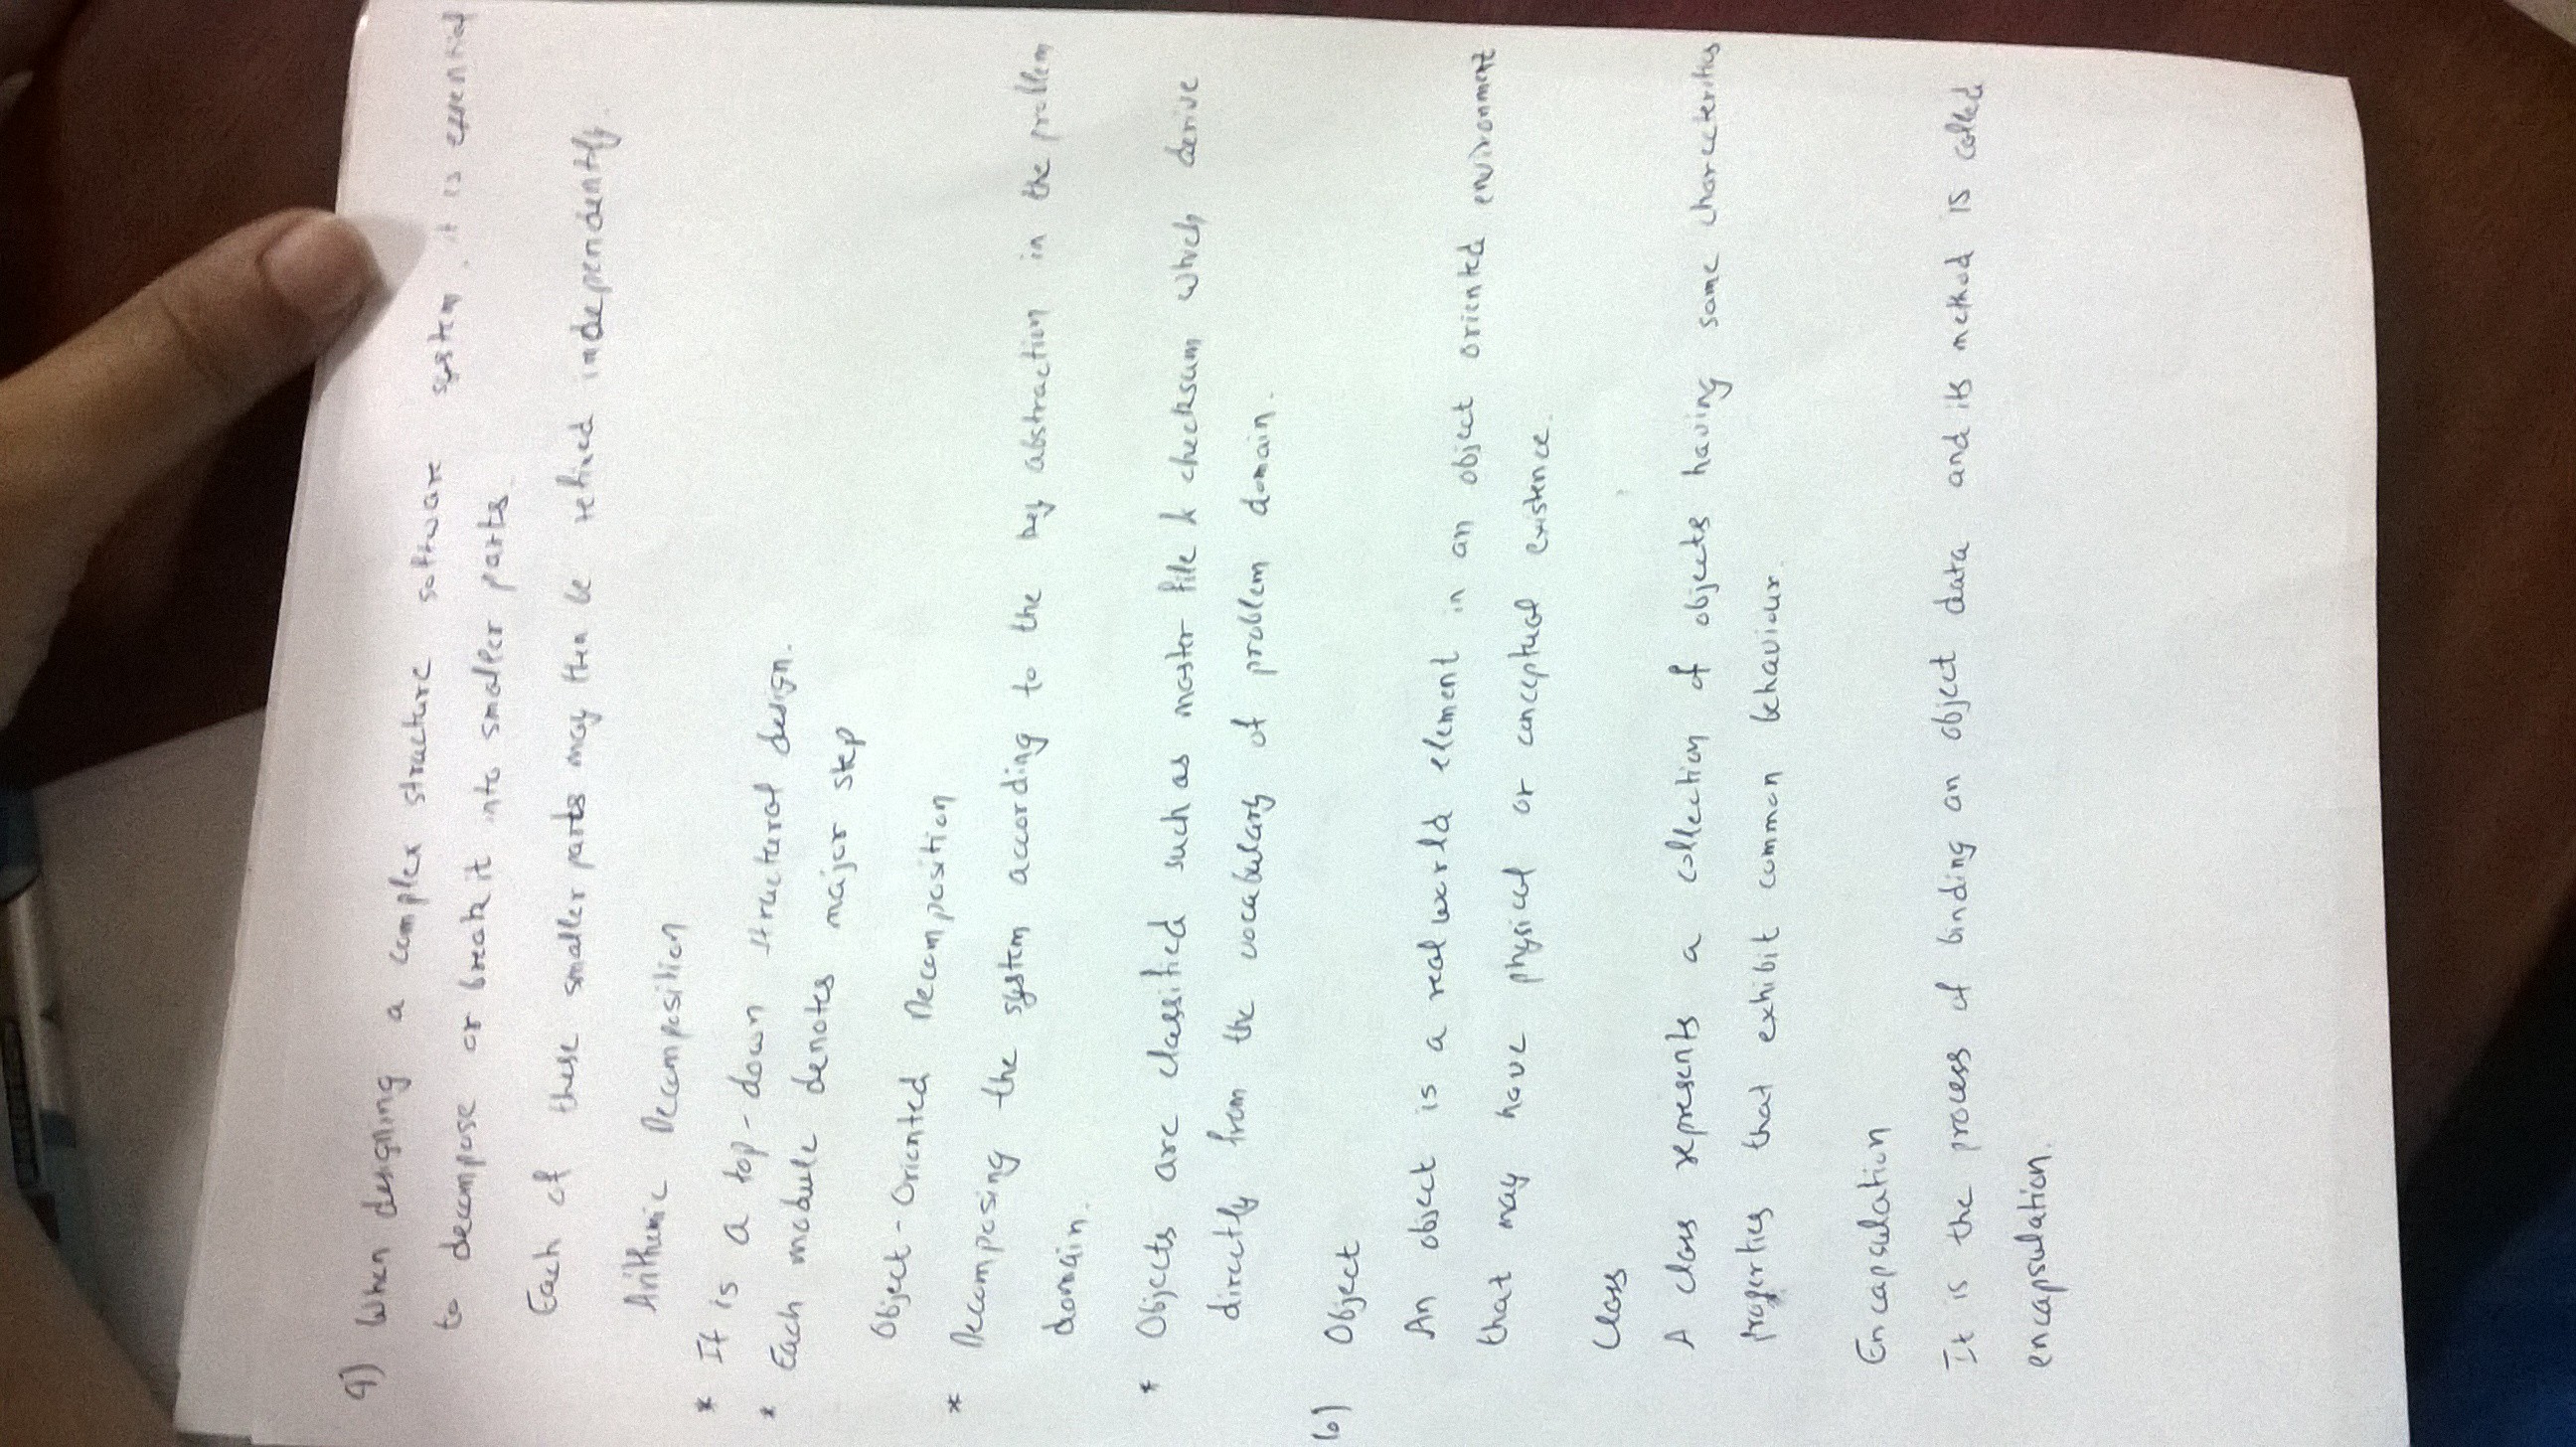 9) When designing a complex structure software system, it is essential
to decompose or break it into smaller parts.
Each of these smaller parts may then be refined independently.
Arithemic Decomposition
* It is a top-down structural design.
* Each module denotes major step
Object-Oriented Decomposition
* Decomposing the system according to the key abstraction in the problem
domain.
* Objects are classified such as master file & checksum which derive
directly from the vocabulary of problem domain.
6) Object
An object is a real world element in an object oriented environment
that may have physical or conceptual existence.
Class
A class represents a collection of objects having same charecteritics
properties that exhibit common behaviour.
Encapsulation
It is the process of binding an object data and its method is called
encapsulation.